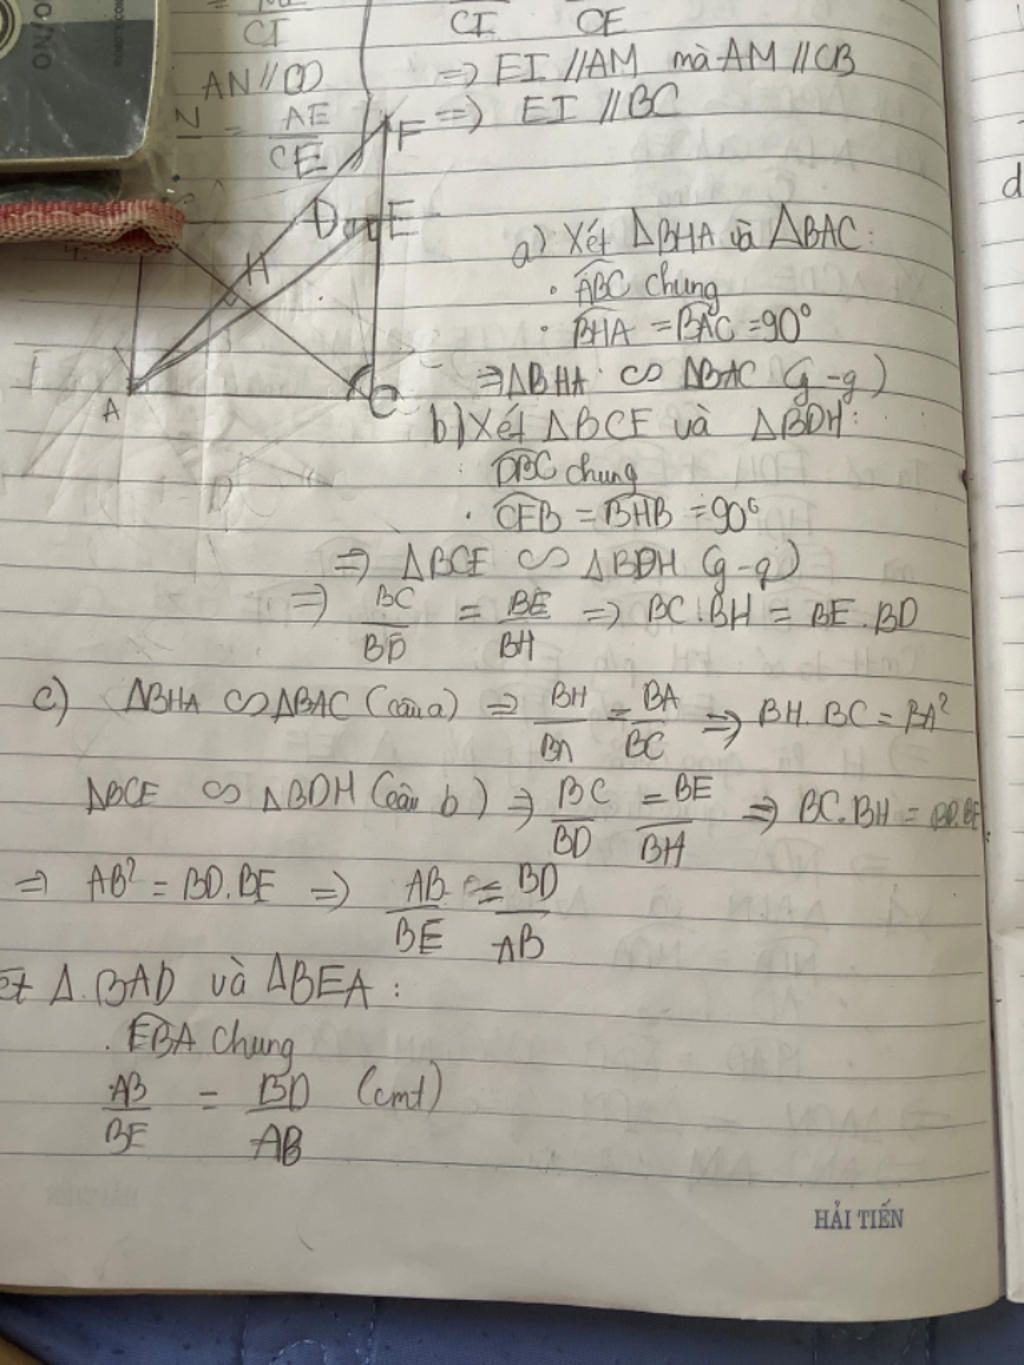 CI
CI CE
AN//
=> EI //AM mà AM //CB
= AE
CE
=> EI //BC
F
D E
H
A C
a) Xét ΔBHA và ΔBAC:
. ABC chung
. BHA = BAC = 90°
=> ΔBHA ∽ ΔBAC (g-g)
b) Xét ΔBCE và ΔBDH:
DBC chung
. CEB = BHB = 90°
=> ΔBCE ∽ ΔBDH (g-g)
=> BC/BD = BE/BH => BC.BH = BE.BD
c) ΔBHA ∽ ΔBAC (câu a) => BH/BA = BA/BC => BH.BC = BA²
ΔBCE ∽ ΔBDH (câu b) => BC/BD = BE/BH => BC.BH = BD.BE
=> AB² = BD.BE => AB/BE = BD/AB
ét Δ.BAD và ΔBEA:
. EBA chung
AB/BE = BD/AB (cmt)
HẢI TIẾN
d